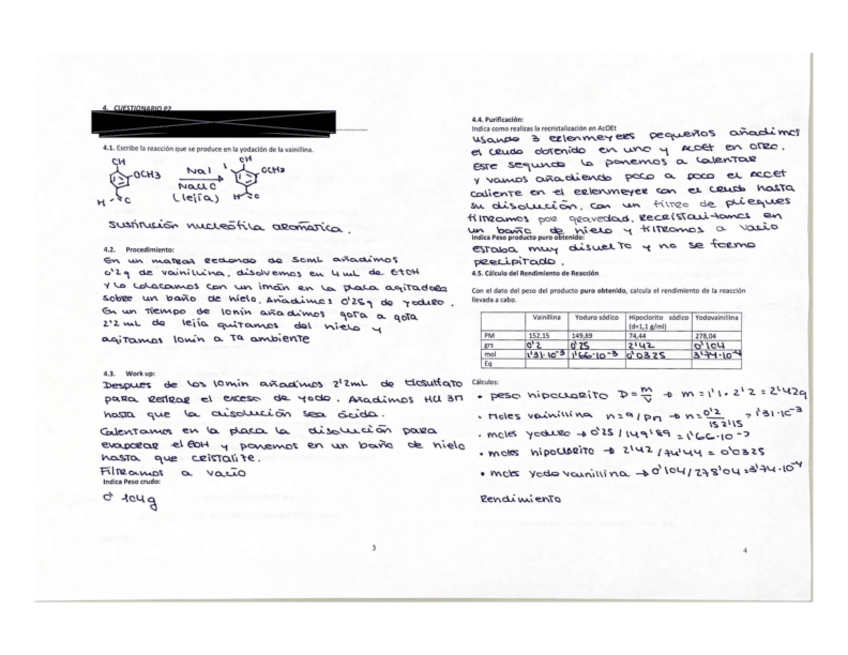 4. CUESTIONARIO P2
4.1. Escribe la reacción que se produce en la yodación de la vainillina.
OH
OCH3
NaI
NaClO
(lejía)
I
OH
OCH3
H
H
sustitución nucleófila aromática.
4.2. Procedimiento:
En un matraz redondo de 50mL añadimos
0'2g de vainillina, disolvemos en 4 mL de EtOH
y lo colocamos con un imán en la placa agitadora
sobre un baño de hielo. Añadimos 0'25g de yoduro.
En un tiempo de 10min añadimos gota a gota
2'2 mL de lejía quitamos del hielo y
agitamos 10min a Tª ambiente
4.3. Work up:
Después de los 10min añadimos 2'2mL de tiosulfato
para retirar el exceso de yodo. Añadimos HCl 3M
hasta que la disolución sea ácida.
Calentamos en la placa la disolución para
evaporar el EtOH y ponemos en un baño de hielo
hasta que cristalite.
Filtramos a vacío
Indica Peso crudo:
0'104g
3
4.4. Purificación:
Indica como realizas la recristalización en AcOEt
Usando 3 erlenmeyers pequeños añadimos
el crudo obtenido en uno y AcOEt en otro.
Este segundo lo ponemos a calentar
y vamos añadiendo poco a poco el AcOEt
caliente en el erlenmeyer con el crudo hasta
su disolución. Con un filtro de pliegues
filtramos por gravedad. Recristalizamos en
un baño de hielo y filtramos a vacío
Indica Peso producto puro obtenido:
estaba muy disuelto y no se formó
precipitado.
4.5. Cálculo del Rendimiento de Reacción
Con el dato del peso del producto puro obtenido, calcula el rendimiento de la reacción
llevada a cabo.
Vainillina Yoduro sódico Hipoclorito sódico (d=1,1 g/ml) Yodovainillina
PM 152,15 149,89 74,44 278,04
grs 0'2 0'25 2'42 0'104
mol 1'31·10⁻³ 1'66·10⁻³ 0'0325 3'74·10⁻⁴
Eq
Cálculos:
• peso hipoclorito D = m/V → m = 1'1 · 2'2 = 2'42g
• moles vainillina n = g/Pm → n = 0'2/152'15 = 1'31·10⁻³
• moles yoduro → 0'25/149'89 = 1'66·10⁻³
• moles hipoclorito → 2'42/74'44 = 0'0325
• moles yodo vainillina → 0'104/278'04 = 3'74·10⁻⁴
Rendimiento
4